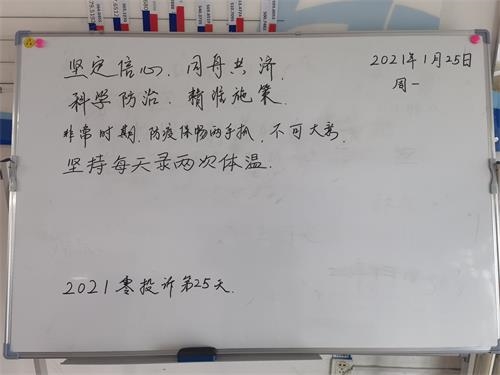 坚定信心、同舟共济、
2021年1月25日
周一
科学防治、精准施策、
非常时期、防疫保畅两手抓、不可大意
坚持每天录两次体温.
2021零投诉第25天.